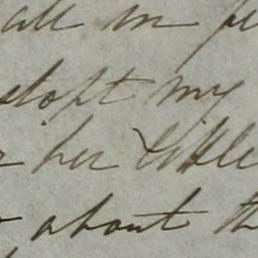 all in
stopt my
her little
about th